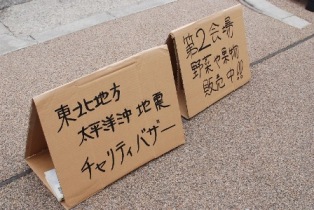 東北地方
太平洋沖地震
チャリティバザー
第2会場
野菜や果物
販売中!!